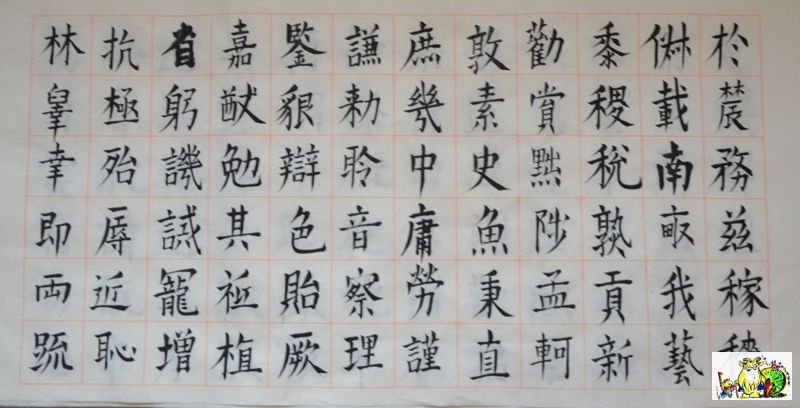 於農務茲稼
俶載南畝我藝
黍稷稅熟貢新
勸賞黜陟孟軻
敦素史魚秉直
庶幾中庸勞謹
謙勑聆音察理
鑒貌辯色貽厥
嘉猷勉其祗植
省躬譏誡寵增
抗極殆辱近恥
林皐幸即兩疏